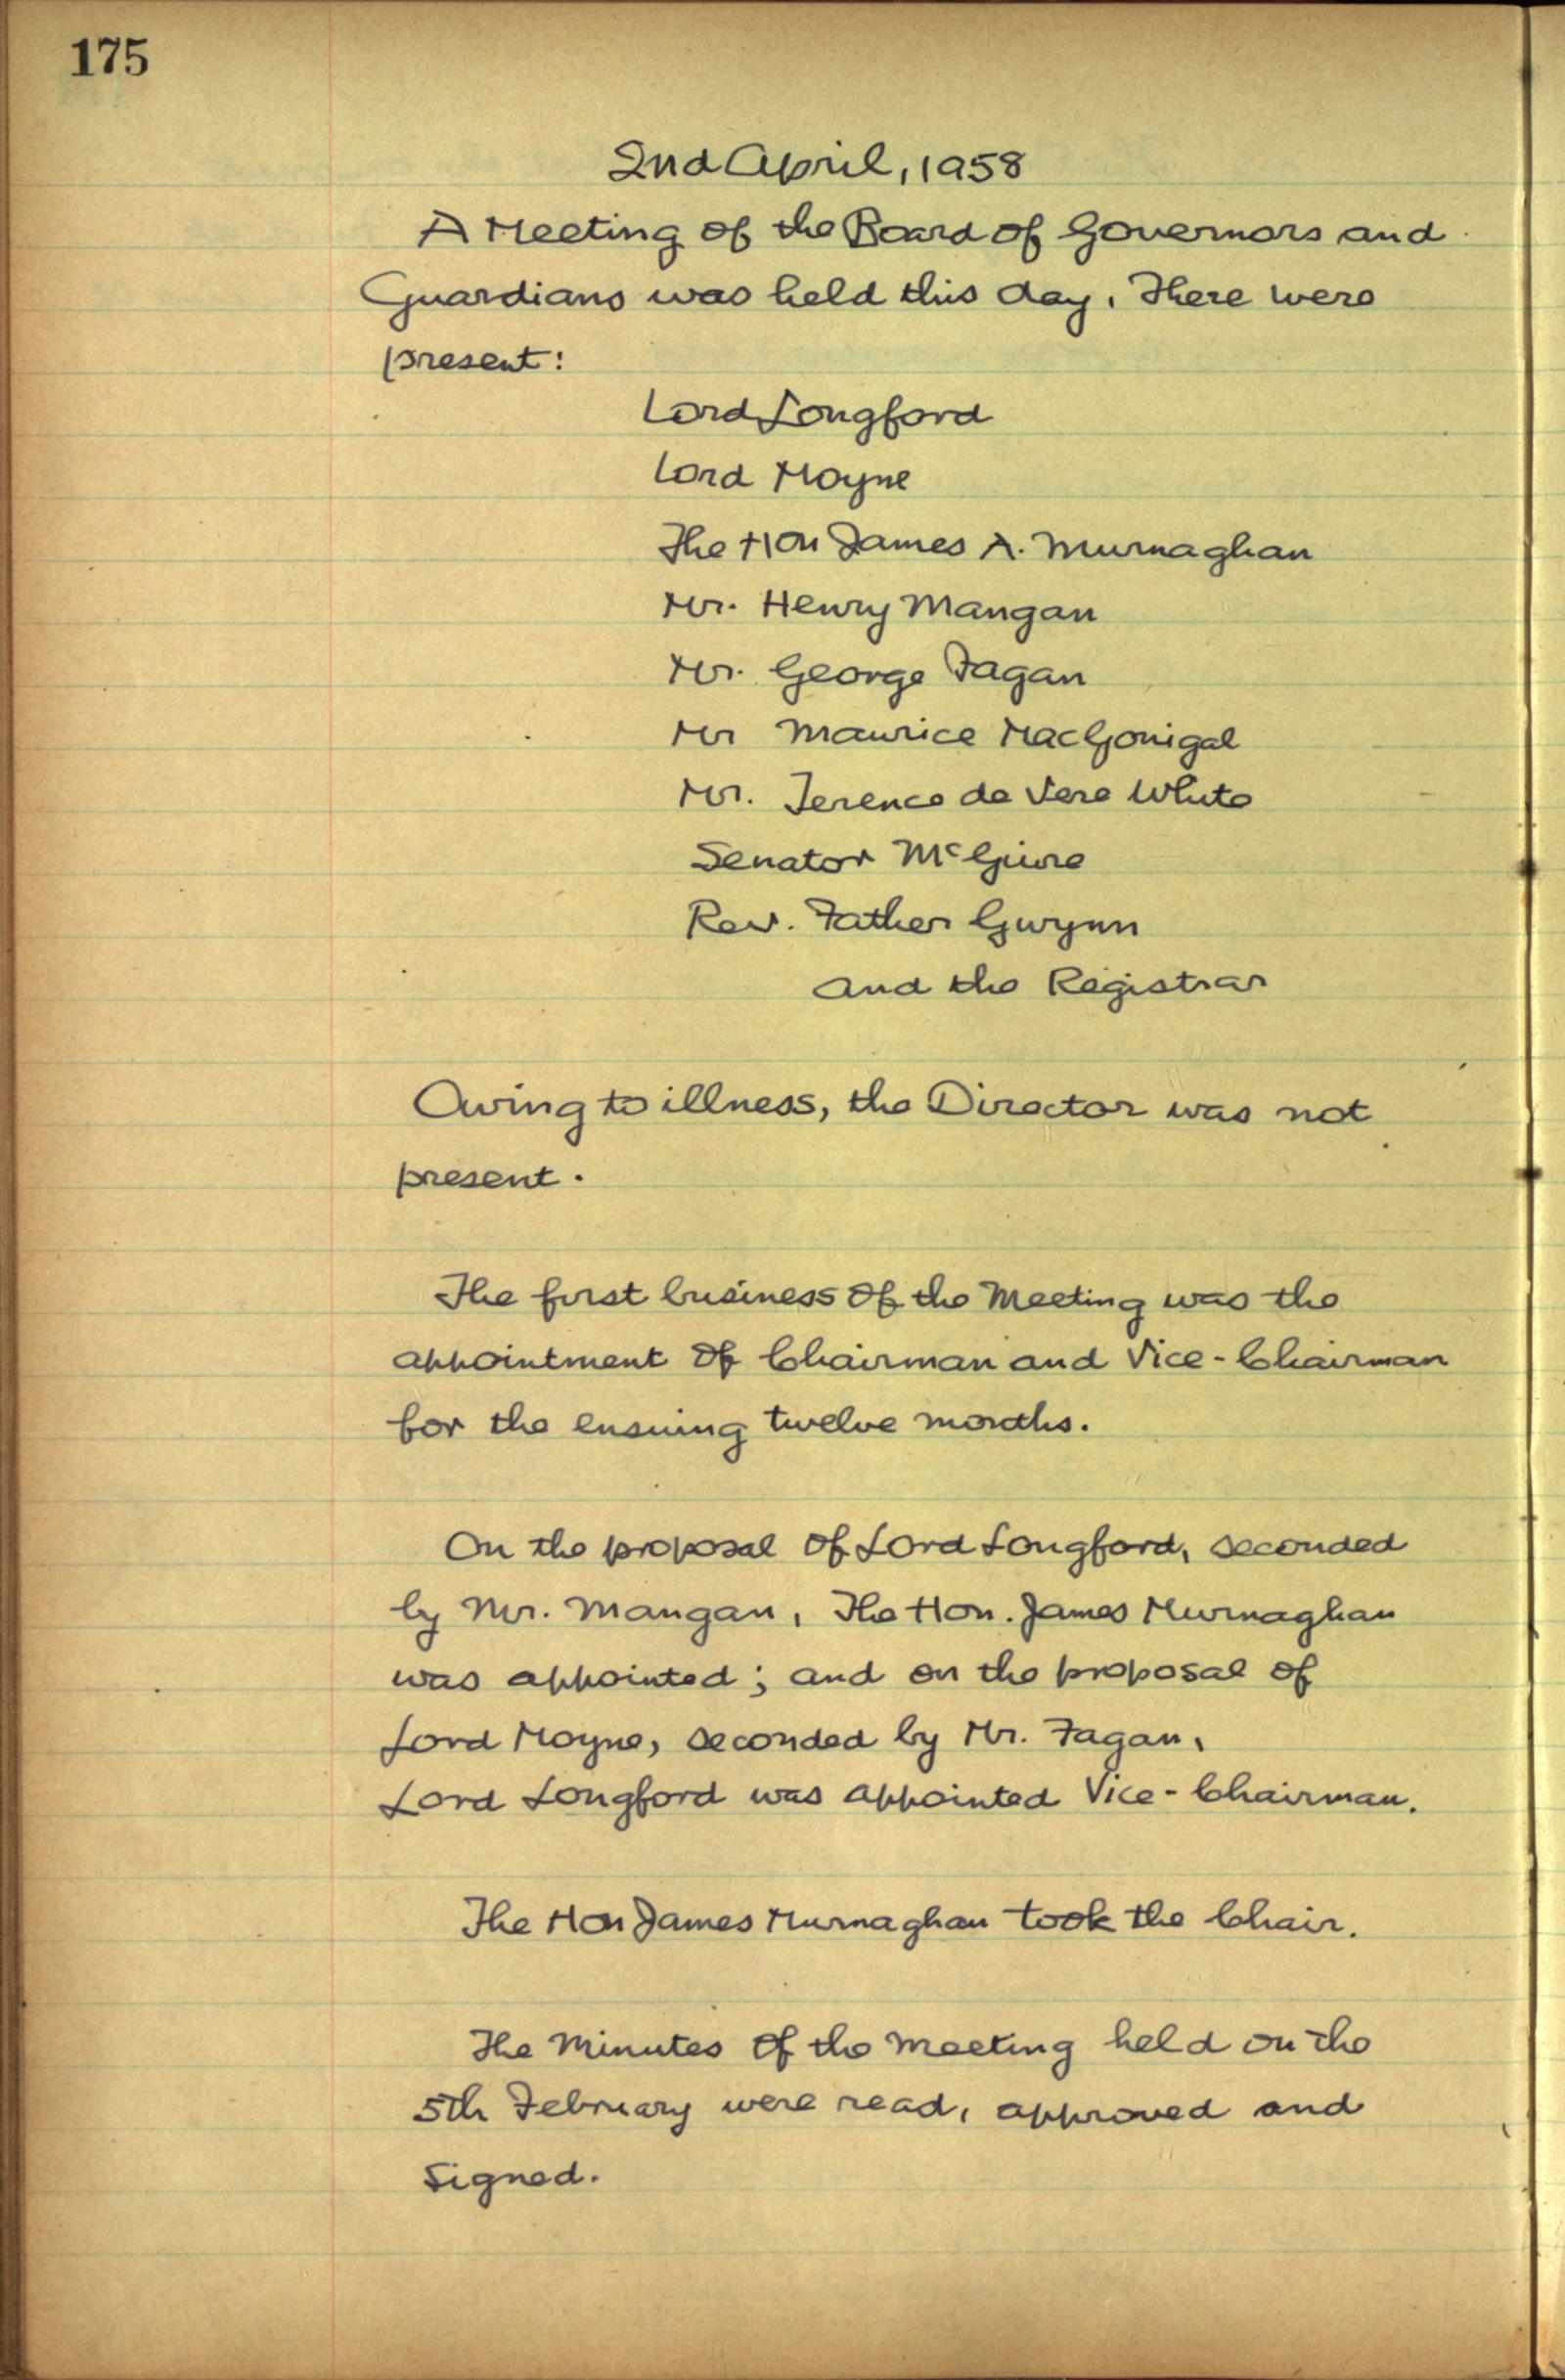 175
2nd April, 1958
A Meeting of the Board of Governors and
Guardians was held this day. There were
present:
Lord Longford
Lord Moyne
The Hon James A. Murnaghan
Mr. Henry Mangan
Mr. George Fagan
Mr Maurice MacGonigal
Mr. Terence de Vere White
Senator McGuire
Rev. Father Gwynn
and the Registrar
Owing to illness, the Director was not
present.
The first business of the Meeting was the
appointment of Chairman and Vice-Chairman
for the ensuing twelve months.
On the proposal of Lord Longford, seconded
by Mr. Mangan, The Hon. James Murnaghan
was appointed; and on the proposal of
Lord Moyne, seconded by Mr. Fagan,
Lord Longford was appointed Vice-Chairman.
The Hon James Murnaghan took the Chair.
The Minutes of the Meeting held on the
5th February were read, approved and
signed.